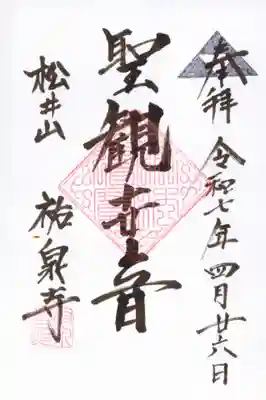 奉拝 令和七年四月廿六日
聖観世音
松井山
祐泉寺